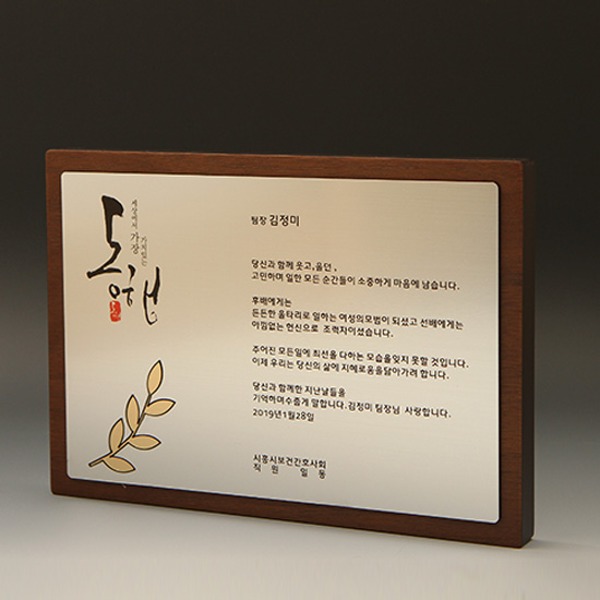 세상에서 가장
가치있는
동행
팀장 김정미
당신과 함께 웃고,울던 ,
고민하며 일한 모든 순간들이 소중하게 마음에 남습니다.
후배에게는
든든한 울타리로 일하는 여성의모범이 되셨고 선배에게는
아낌없는 헌신으로 조력자이셨습니다.
주어진 모든일에 최선을 다하는 모습을잊지 못할 것입니다.
이제 우리는 당신의 삶에 지혜로움을닮아가려 합니다.
당신과 함께한 지난날들을
기억하며수줍게 말합니다.김정미 팀장님 사랑합니다.
2019년1월28일
시흥시보건간호사회
직 원 일 동